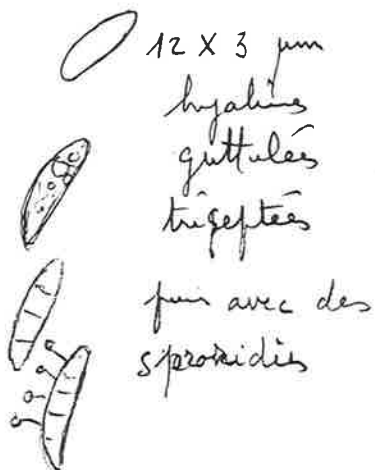 12 X 3 µm
hyalines
guttulées
triseptées
puis avec des
sporoidies